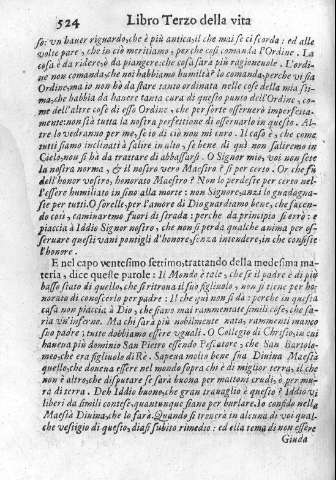 524 Libro Terzo della vita
so: un hauer riguardo, che è più antica, il che mai se ci scorda: ed alle
volte pare, che in ciò meritiamo, perche così comanda l'Ordine. La
cosa è da ridere, ò da piangere: che cosa sarà più ragioneuole. L'ordi-
ne non comanda, che noi habbiamo humiltà? lo comanda, perche vi sia
Ordine, ma io non hò da stare tanto ordinata nelle cose della mia sti-
ma, che habbia da hauere tanta cura di questo punto dell'Ordine, co-
me dell'altre cose di esso Ordine, che per sorte osseruerò imperfetta-
mente: non stà tutta la nostra perfettione di osseruarlo in questo. Al-
tre lo vedranno per me, se io di ciò non mi curo. Il caso è, che come
tutti siamo inclinati à salire in alto, se bene di quà non saliremo in
Cielo, non si hà da trattare di abbassarsi. O Signor mio, voi non sete
la nostra norma, & il nostro vero Maestro? sì per certo. Or che fù
dell'honor vostro, honorato Maestro? Non lo perdeste per certo nel-
l'essere humiliato in fino alla morte: non Signore, anzi lo guadagna-
ste per tutti. O sorelle, per l'amore di Dio guardiamo bene, che facen-
do così, caminaremo fuori di strada: perche da principio si errò: e
piaccia à Iddio Signor nostro, che non si perda qualche anima per of-
seruare questi vani pontigli d'honore, senza intendere, in che consiste
l'honore.
E nel capo ventesimo settimo, trattando della medesima ma-
teria, dice queste parole: Il Mondo è tale, che se il padre è di più
basso stato di quello, che si ritroua il suo figliuolo, non si tiene per ho-
norato di conoscerlo per padre: Il che quì non si dà: perche in questa
casa non piaccia à Dio, che siano mai rammentate simili cose, che sa-
ria vn'inferno. Ma chi sarà più nobilmente nata, rammenti manco
suo padre: tutte dobbiamo essere vguali. O Collegio di Christo, in cui
haueua più dominio San Pietro essendo Pescatore, che San Bartolo-
meo, che era figliuolo di Rè. Sapeua molto bene sua Diuina Maestà
quello, che doueua essere nel mondo sopra chi è di miglior terra, il che
non è altro, che disputare se sarà buona per mattoni crudi, ò per mu-
ra di terra. Deh Iddio buono, che gran trauaglio è questo? Iddio vi
liberi da simili contese, quantunque siano per burlare. Io confido nella
Maestà Diuina, che lo farà. Quando si trouerà in alcuna di voi qual-
che vestigio di questo, diasi subito rimedio: ed ella tema di non essere
Giuda